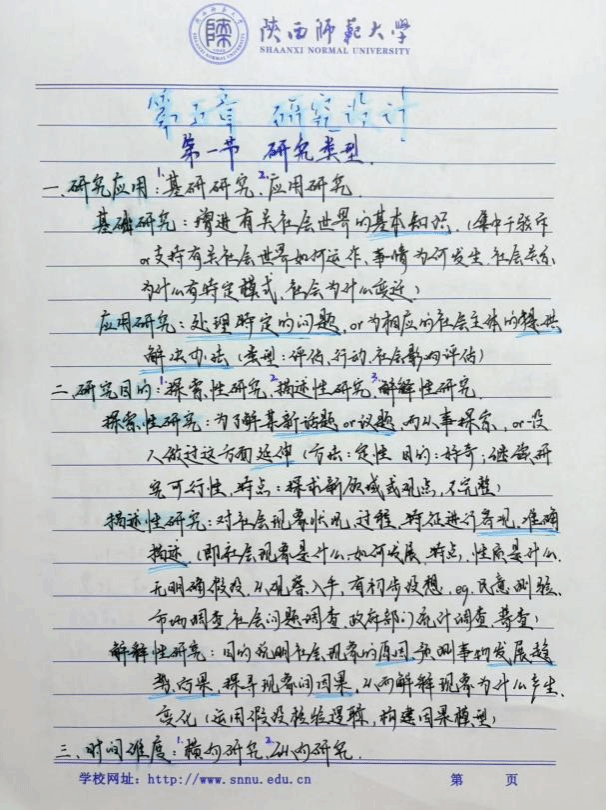 陕西师范大学
SHAANXI NORMAL UNIVERSITY
第五章 研究设计
第一节 研究类型
一、研究应用：1.基研研究 2.应用研究
基础研究：增进有关社会世界的基本知识.（集中于驳斥
or支持有关社会世界如何运作、事情为何发生、社会关系
为什么有特定模式、社会为什么变迁）
应用研究：处理特定的问题，or为相应的社会主体的提供
解决办法（类型：评估、行动、社会影响评估）
二、研究目的：1.探索性研究 2.描述性研究 3.解释性研究
探索性研究：为了解某新话题or议题，而从事探索，or没
人做过这方面延伸（方法：定性 目的：好奇；继续研
究可行性，特点：探求新领域或观点，不完整）
描述性研究：对社会现象状况、过程、特征进行客观、准确
描述.（即社会现象是什么、如何发展、特点、性质是什么.
无明确假设，从观察入手，有初步设想. eg.民意测验、
市场调查、社会问题调查、政府部门统计调查、普查）
解释性研究：目的说明社会现象的原因，预测事物发展趋
势or后果，探寻现象间因果，从而解释现象为什么产生、
变化（运用假设检验逻辑，构建因果模型）
三、时间维度：1.横向研究 2.纵向研究.
学校网址：http://www.snnu.edu.cn 第 页